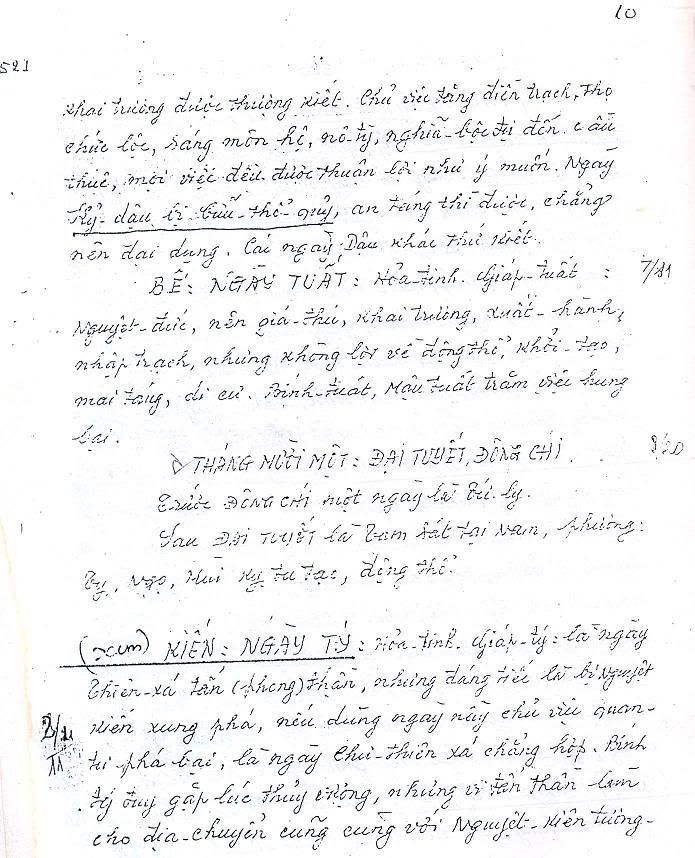 10
521
khai trương được thượng kiết. Chủ việc tăng điền trạch, thọ
chức lộc, sáng môn hộ, nô-tỳ, nghĩa-bộc tự đến. cầu
thuê, mọi việc đều được thuận lợi như ý muốn. Ngày
Kỷ-dậu bị bửu-thổ-quỷ, an táng thì được, chẳng
nên đại dụng. Các ngày Dậu khác thứ kiết.
BẾ: NGÀY TUẤT: Hỏa-tinh. Giáp-tuất : 7/21
Nguyệt-đức, nên giá-thú, khai trương, xuất-hành,
nhập trạch, nhưng không lợi về động thổ, khởi-tạo,
mai táng, di cư. Bính-tuất, Mậu tuất trăm việc hung
bại.
THÁNG MƯỜI MỘT: ĐẠI TUYẾT, ĐÔNG CHÍ.
Trước ĐÔNG CHÍ một ngày là Tứ-ly.
Sau ĐẠI TUYẾT là Tam Sát tại Nam, phương:
Tỵ, Ngọ, Mùi kỵ tu tạo, động thổ.
(xem) KIẾN: NGÀY TÝ: Hỏa-tinh. Giáp-tý: là ngày
Thiên-xá tấn (phong) thần, nhưng đáng tiếc là bị Nguyệt
kiến xung phá, nếu dùng ngày này chủ việc quan-
tư phá bại, là ngày Chu-thiên xá chẳng hợp. Bính
tý tuy gặp lúc thủy vượng, nhưng vì tến thần lâm
cho địa-chuyển cũng cùng với Nguyệt-kiến tương-